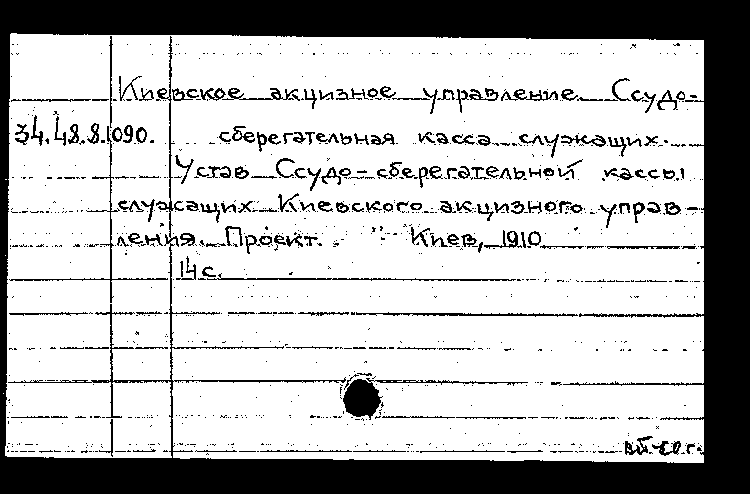 Киевское акцизное управление. Ссудо-
34.48.8.1090. сберегательная касса служащих.
Устав Ссудо-сберегательной кассы
служащих Киевского акцизного управ-
ления. Проект. Киев, 1910
14 с.